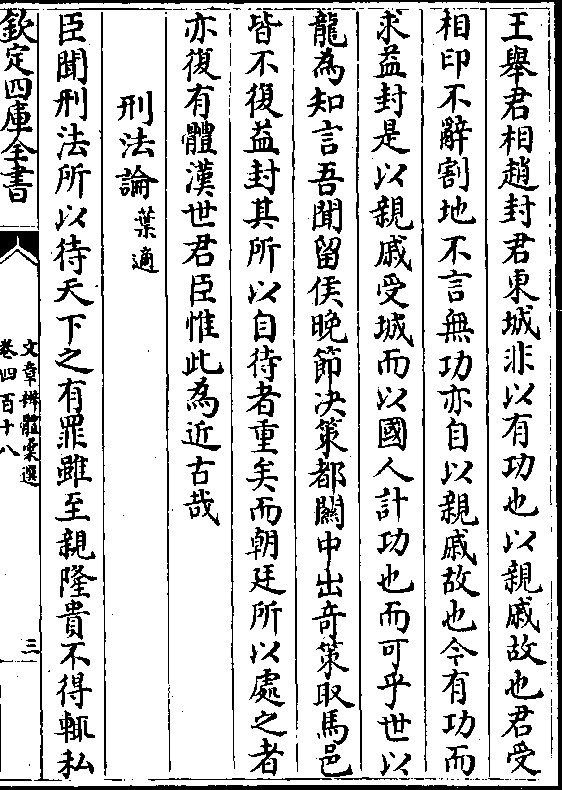 王舉君相趙封君東城非以有功也以親戚故也君受
相印不辭割地不言無功亦自以親戚故也今有功而
求益封是以親戚受城而以國人計功也而可乎世以
龍為知言吾聞留侯晚節决策都關中出奇策取馬邑
皆不復益封其所以自待者重矣而朝廷所以處之者
亦復有體漢世君臣惟此為近古哉
刑法論 葉適
臣聞刑法所以待天下之有罪雖至親隆貴不得輒私
欽定四庫全書
文章辨體彚選
卷四百十八
三